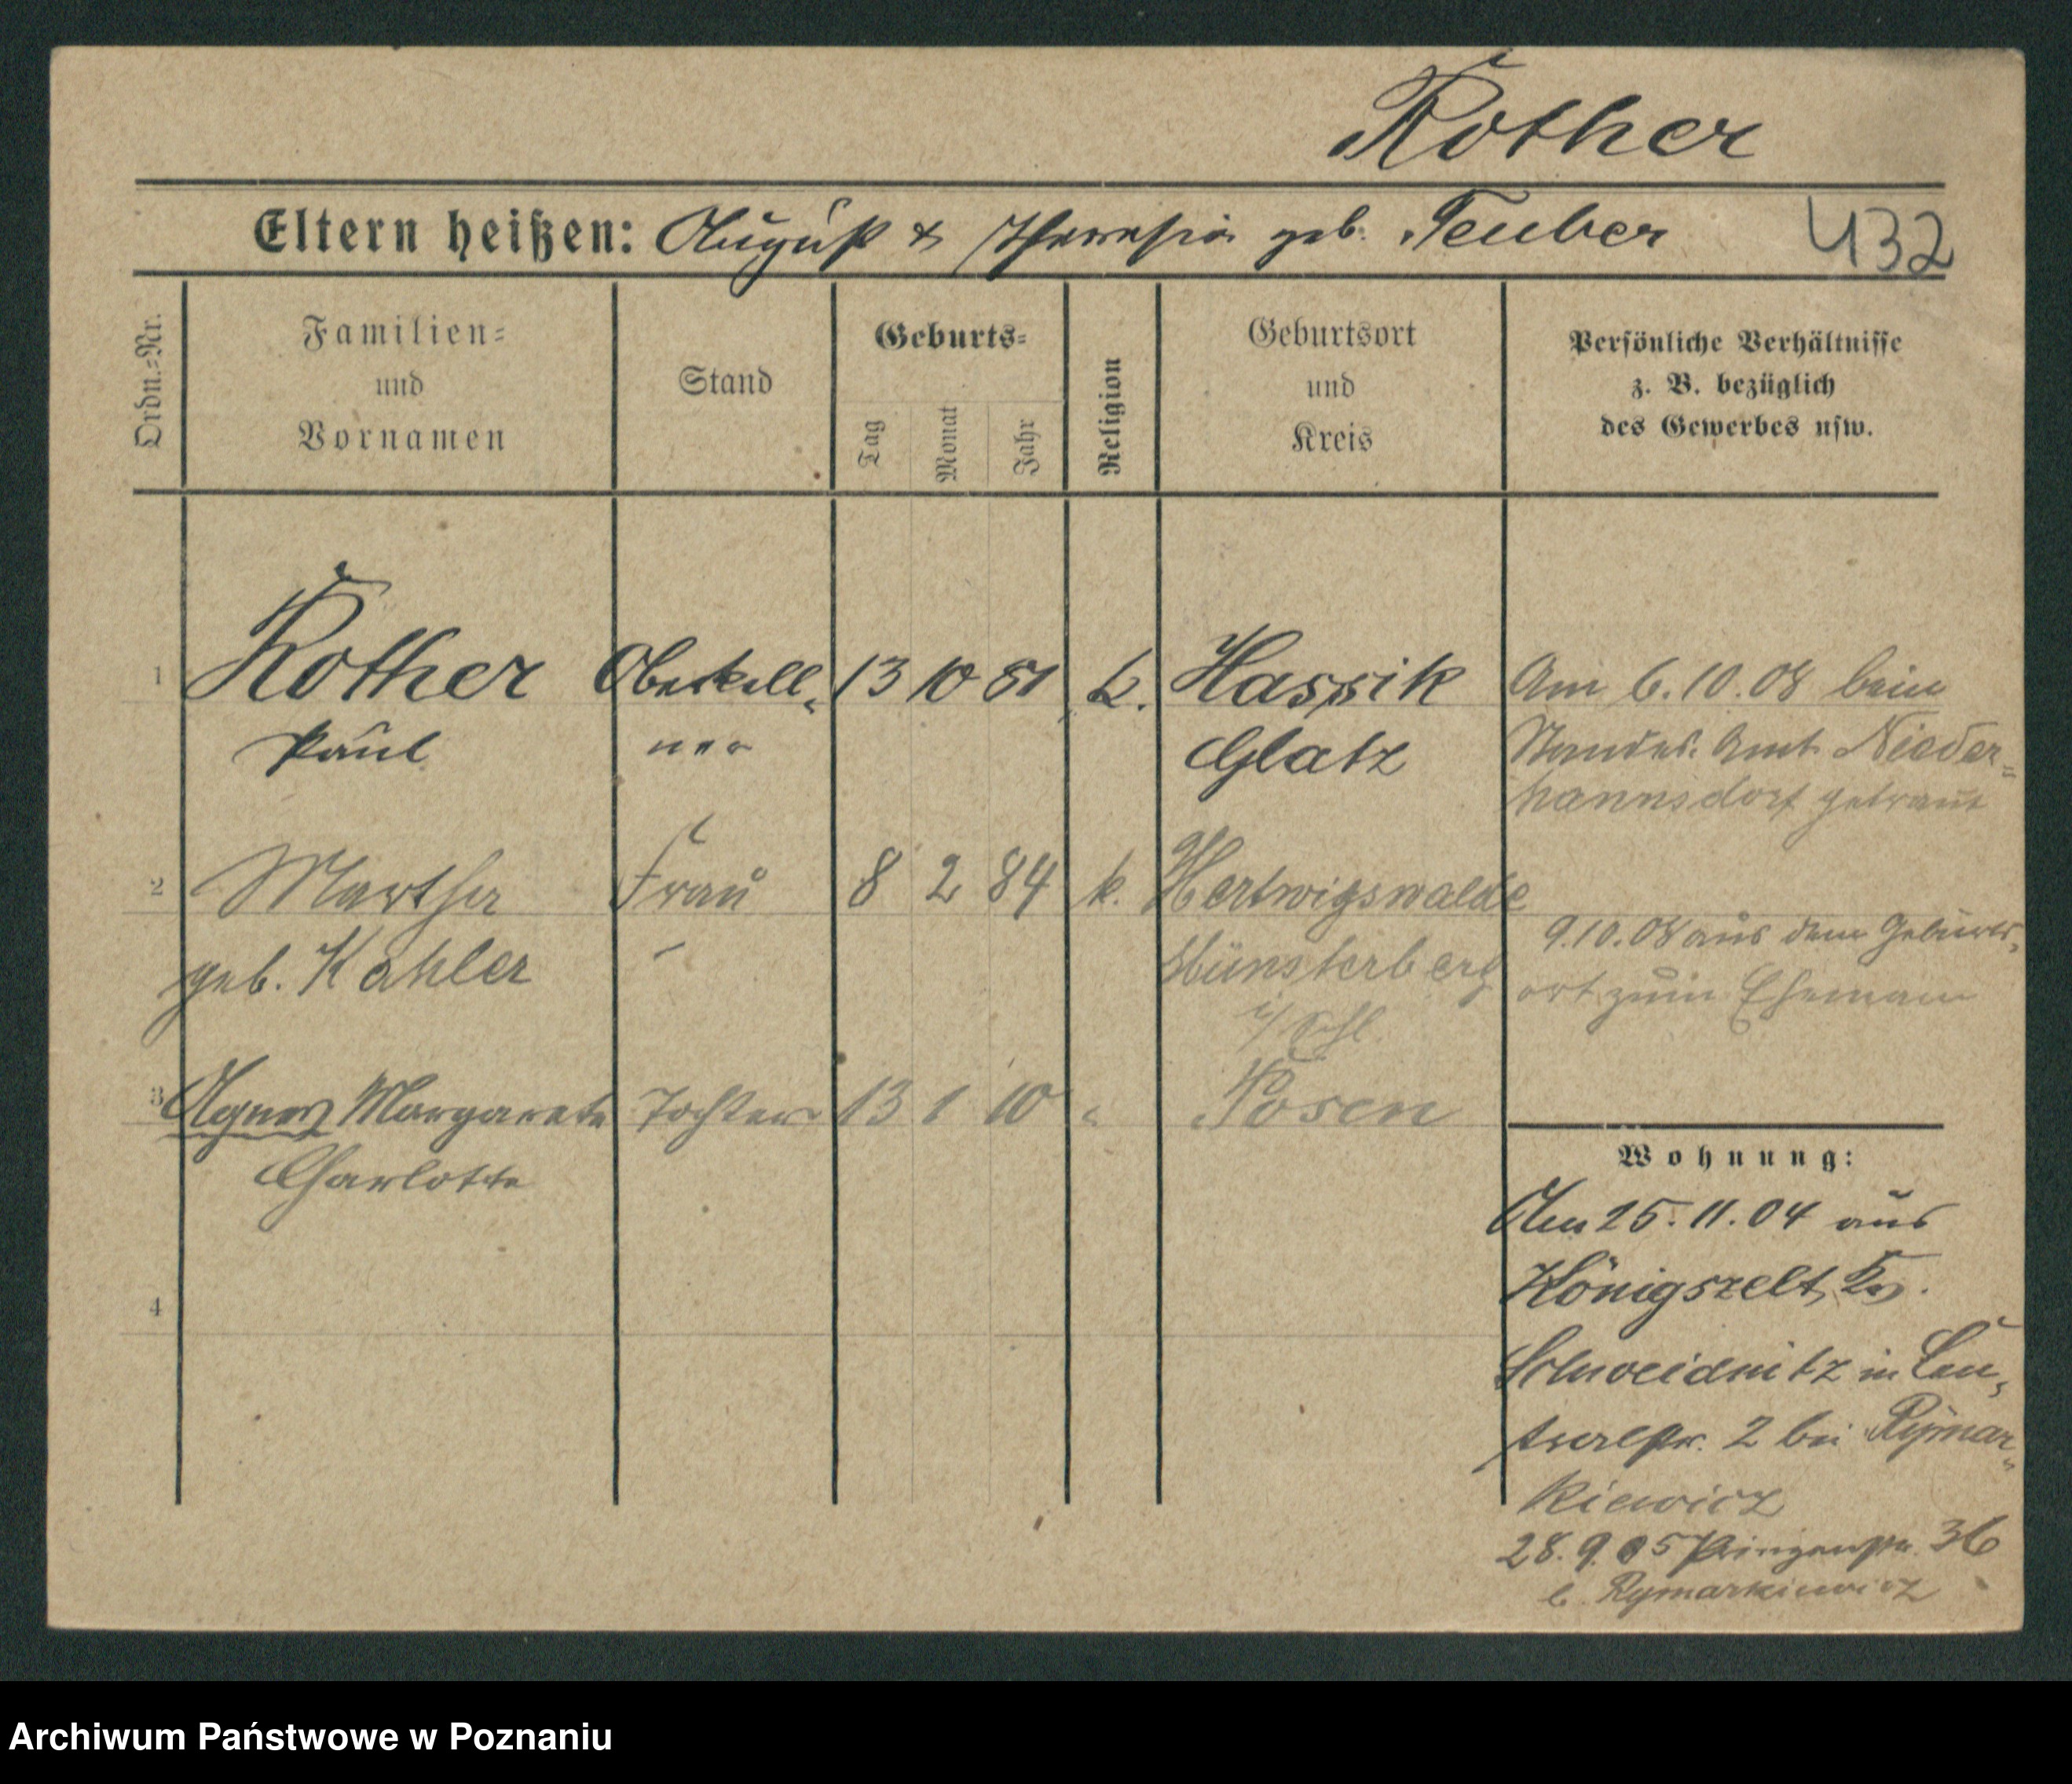 Rother
Eltern heißen: August & Theresia geb. Teuber 432
Ordn.-Nr.
Familien-
und
Vornamen
Stand
Geburts-
Tag
Monat
Jahr
Religion
Geburtsort
und
Kreis
Persönliche Verhältnisse
z. B. bezüglich
des Gewerbes usw.
1 Rother Oberkell- 13 10 81 k. Hassik Am 6.10.08 beim
Paul ner Glatz Standes. Amt Nieder-
hannsdorf getraut
2 Martha Frau 8 2 84 k. Hertwigswalde
geb. Kahler Münsterberg
i/Schl.
9.10.08 aus dem Geburts-
ort zum Ehemann
3 Agnes Margarete Tochter 13 1 10 " Posen
Charlotte
4
Wohnung:
Am 25.11.04 aus
Königszelt, Krs.
Schweidnitz in
2 bei Rymar-
kiewicz
28.9.05 36
b. Rymarkiewicz
Archiwum Państwowe w Poznaniu